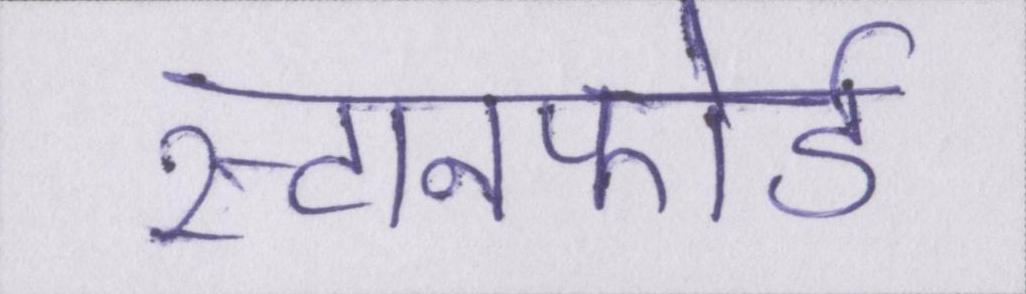 स्टानफोर्ड